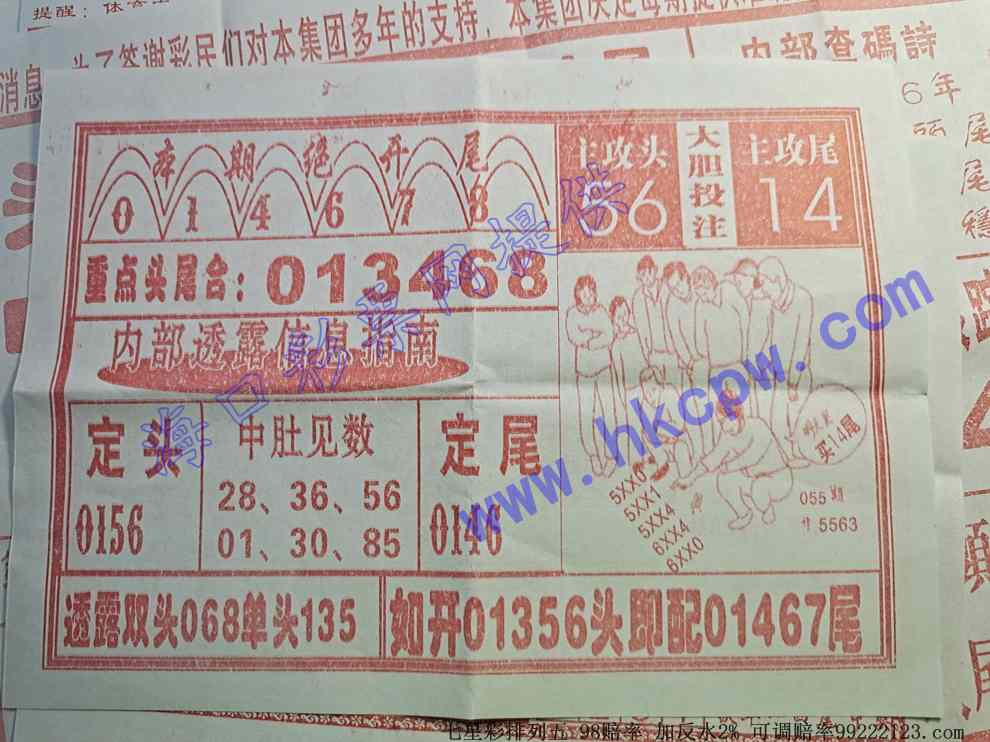 提醒：
为了答谢彩民们对本集团多年的支持，本集团决定每期提供
消息
内部查碼詩
6年
尾
尾
穩
本期绝开尾
0 1 4 6 7 8
主攻头
56
大胆投注
主攻尾
14
重点头尾合：013468
内部透露信息指南
定头
0156
中肚见数
28、36、56
01、30、85
定尾
0146
买14尾
5XX0
5XX1
5XX4
6XX4
6XX0
055期
开5563
透露双头068单头135
如开01356头即配01467尾
尾
海口彩票网提供
www.hkcpw.com
七星彩排列五 98赔率 加反水2% 可调赔率99222123.com